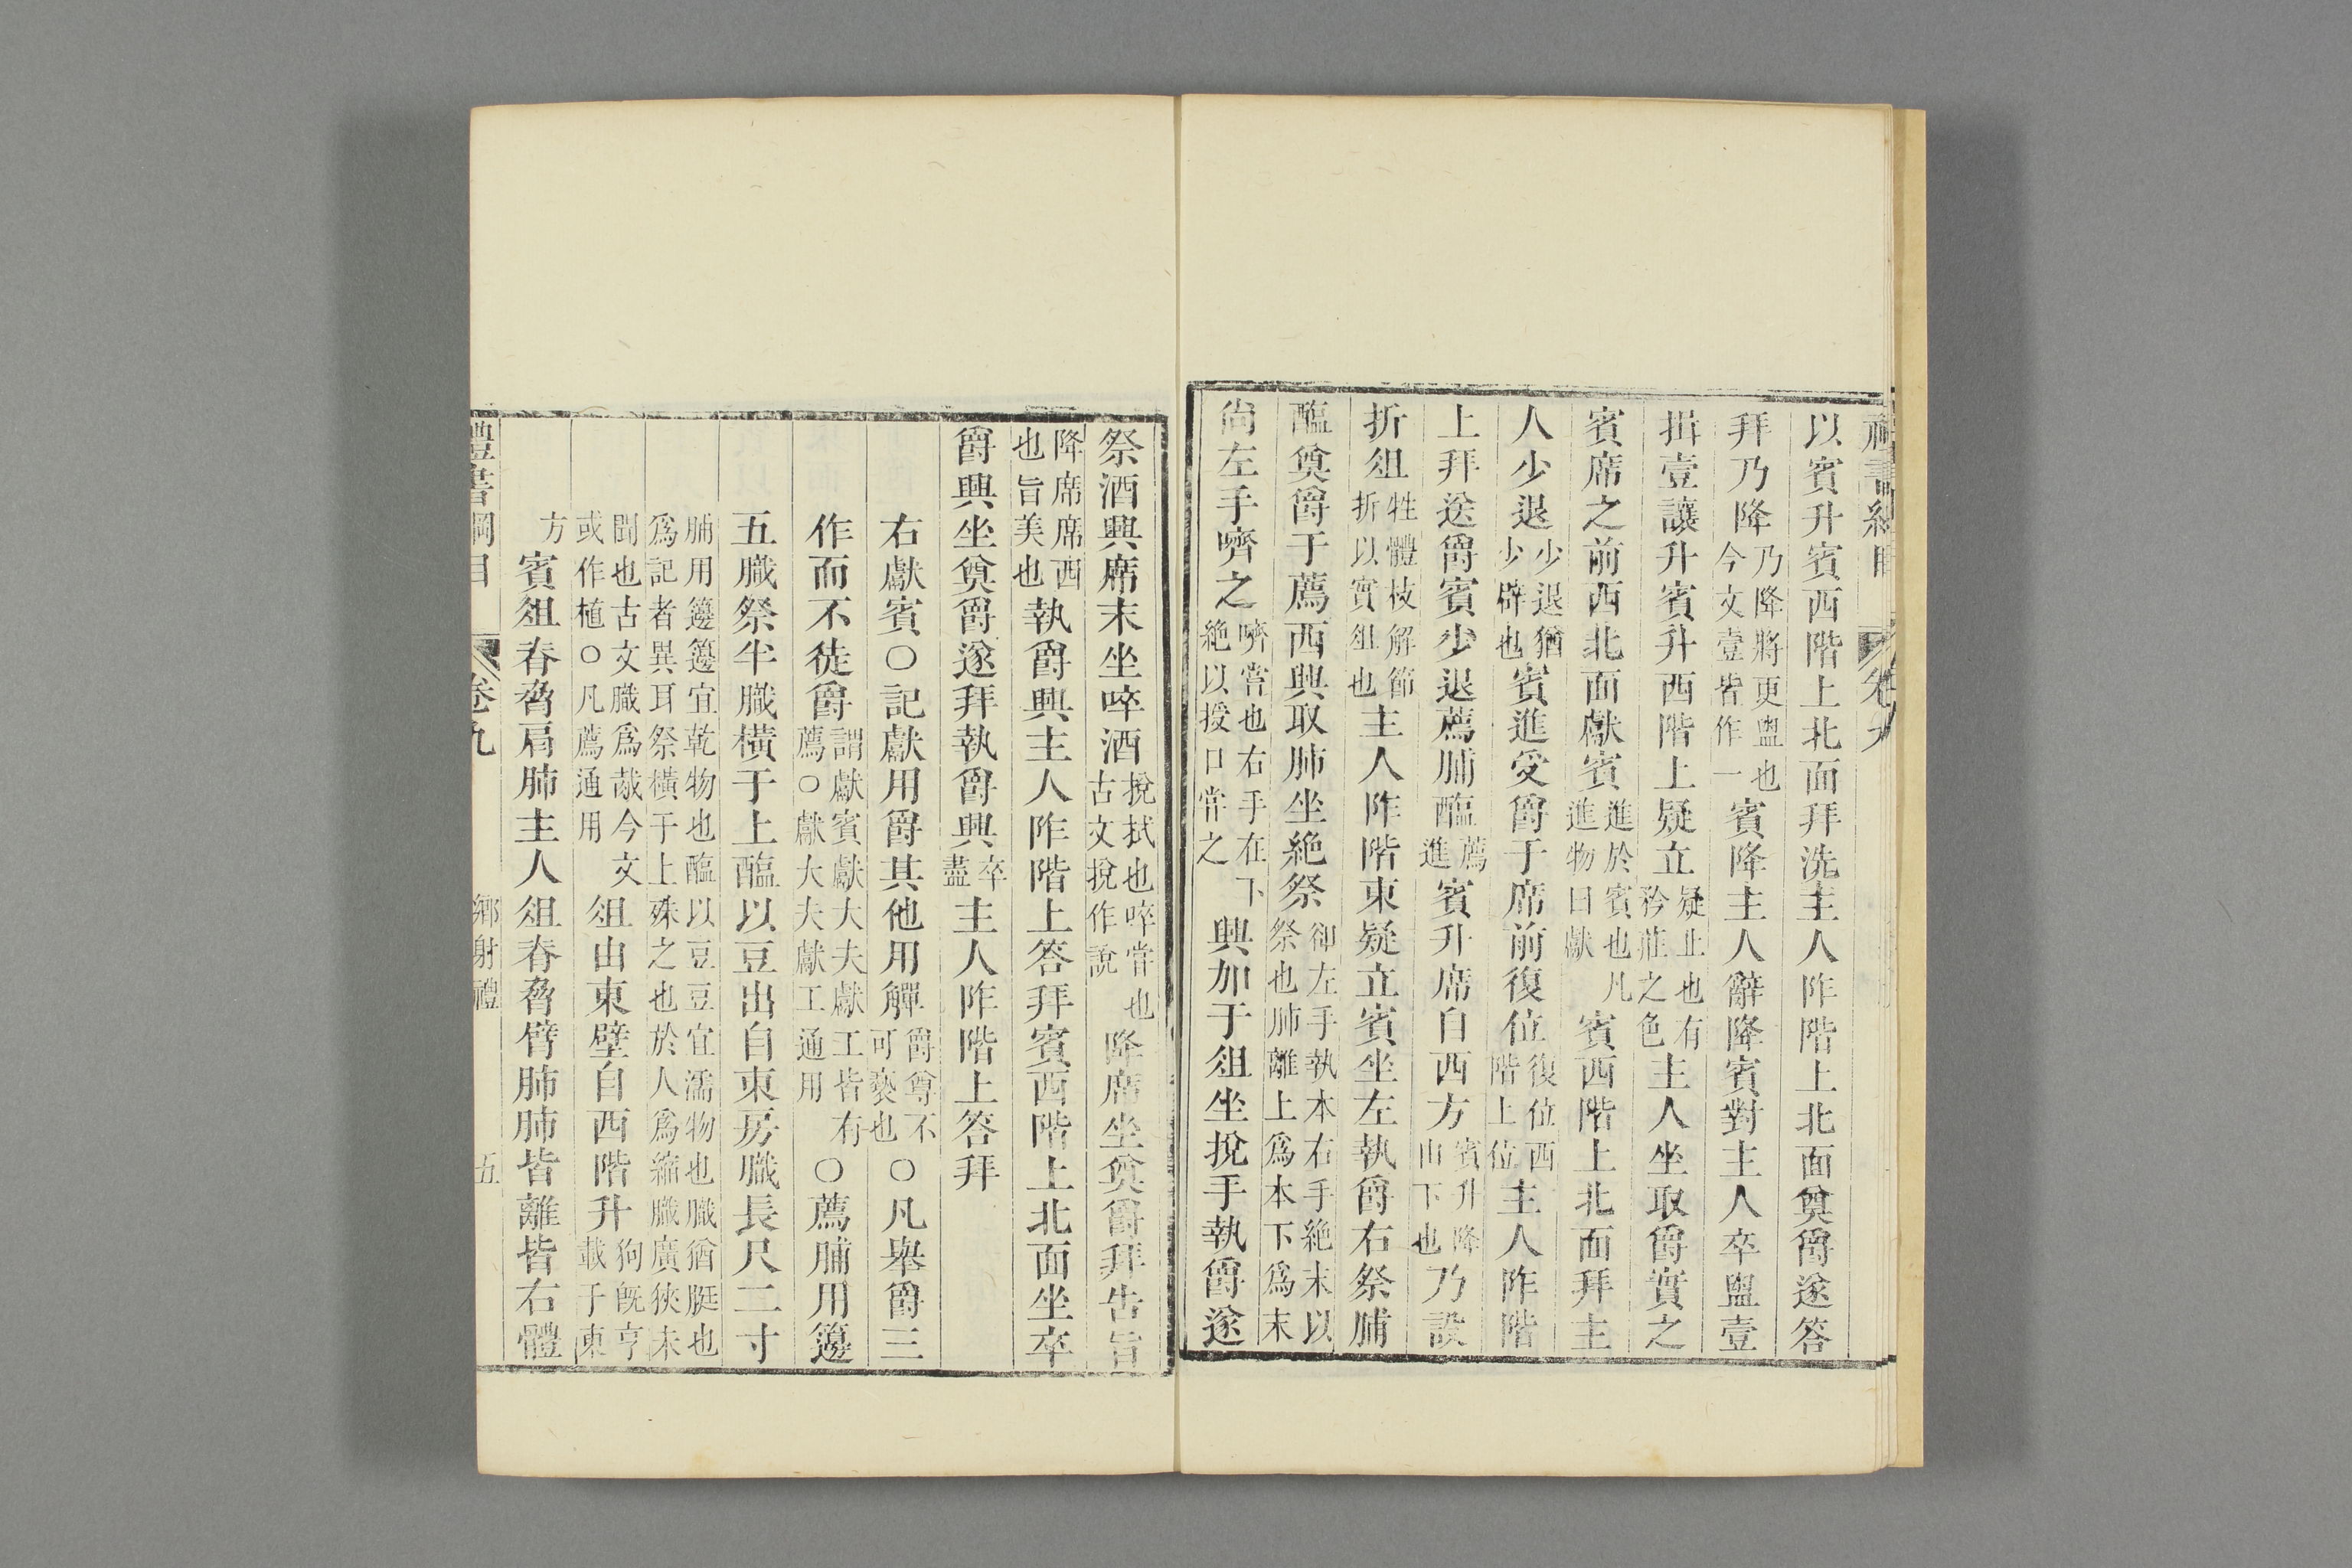 禮書綱目 卷九
以賓升賓西階上北面拜洗主人阼階上北面奠爵遂答
拜乃降乃降將更盥也今文壹皆作一賓降主人辭降賓對主人卒盥壹
揖壹讓升賓升西階上疑立疑止也有矜莊之色主人坐取爵實之
賓席之前西北面獻賓進於賓也凡進物曰獻賓西階上北面拜主
人少退少退猶少辟也賓進受爵于席前復位復位西階上位主人阼階
上拜送爵賓少退薦脯醢薦進賓升席自西方賓升降由下也乃設
折俎牲體枝解節折以實俎也主人阼階東疑立賓坐左執爵右祭脯
醢奠爵于薦西興取肺坐絶祭卻左手執本右手絶末以祭也肺離上爲本下爲末
尙左手嚌之嚌嘗也右手在下絶以授口嘗之興加于俎坐挩手執爵遂
祭酒興席末坐啐酒挩拭也啐嘗也古文挩作說降席坐奠爵拜告旨
降席席西也旨美也執爵興主人阼階上答拜賓西階上北面坐卒
爵興坐奠爵遂拜執爵興卒盡主人阼階上答拜
右獻賓○記獻用爵其他用觶爵尊不可褻也○凡舉爵三
作而不徒爵謂獻賓獻大夫獻工皆有薦○獻大夫獻工通用○薦脯用籩
五膱祭半膱橫于上醢以豆出自東房膱長尺二寸
脯用籩籩宜乾物也醢以豆豆宜濡物也膱猶脡也爲記者異耳祭橫于上殊之也於人爲縮膱廣狹未
聞也古文膱爲胾今文或作植○凡薦通用俎由東壁自西階升狗旣亨載于東
方賓俎脊脅肩肺主人俎脊脅臂肺肺皆離皆右體
禮書綱目 卷九 鄉射禮 五